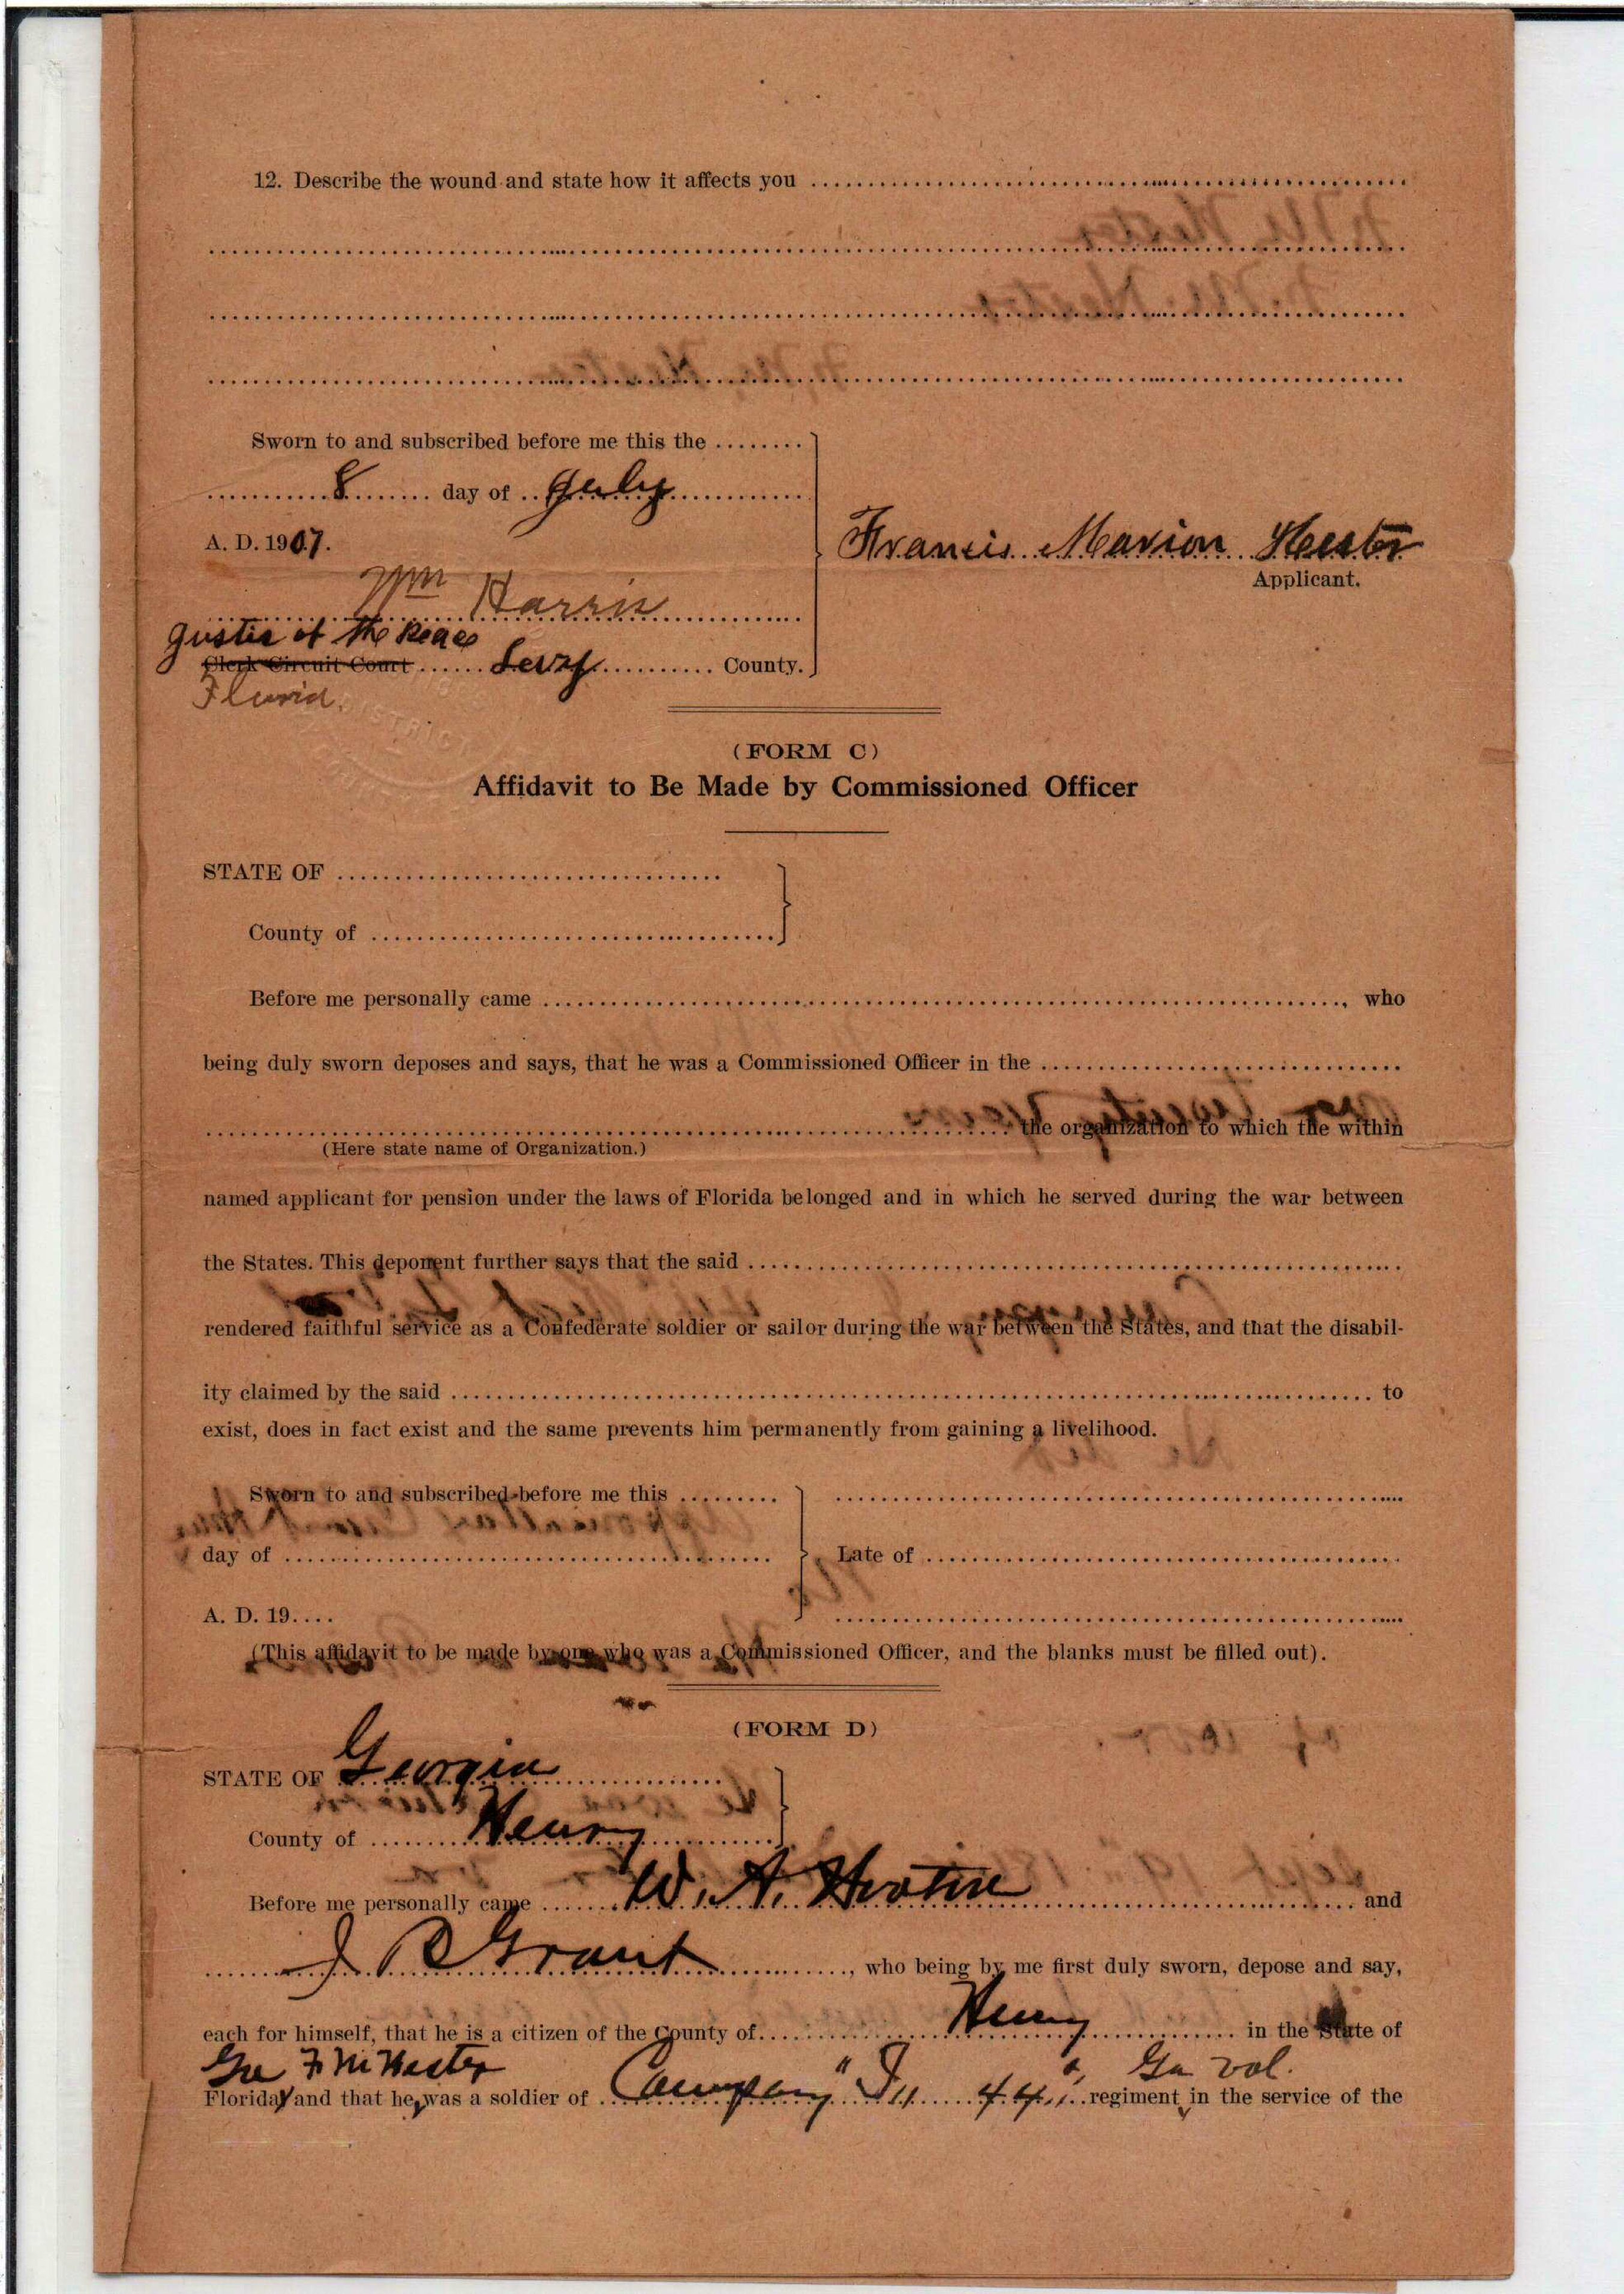 12. Describe the wound and state how it affects you
Sworn to and subscribed before me this the
8 day of July
A. D. 1907.
Francis Marion Hester
Applicant.
Wm Harris
Justice of the Peace
Clerk Circuit Court Levy County.
Florida.
DISTRICT
(FORM C)
Affidavit to Be Made by Commissioned Officer
STATE OF
County of
Before me personally came , who
being duly sworn deposes and says, that he was a Commissioned Officer in the
the organization to which the within
(Here state name of Organization.)
named applicant for pension under the laws of Florida belonged and in which he served during the war between
the States. This deponent further says that the said
rendered faithful service as a Confederate soldier or sailor during the war between the States, and that the disabil-
ity claimed by the said to
exist, does in fact exist and the same prevents him permanently from gaining a livelihood.
Sworn to and subscribed before me this
day of Late of
A. D. 19....
(This affidavit to be made by one who was a Commissioned Officer, and the blanks must be filled out).
(FORM D)
STATE OF Georgia
County of Henry
Before me personally came W. A. and
J P Grant , who being by me first duly sworn, depose and say,
each for himself, that he is a citizen of the County of Henry in the State of
Ga F M Hester Ga vol.
Florida and that he was a soldier of Company 44 regiment in the service of the